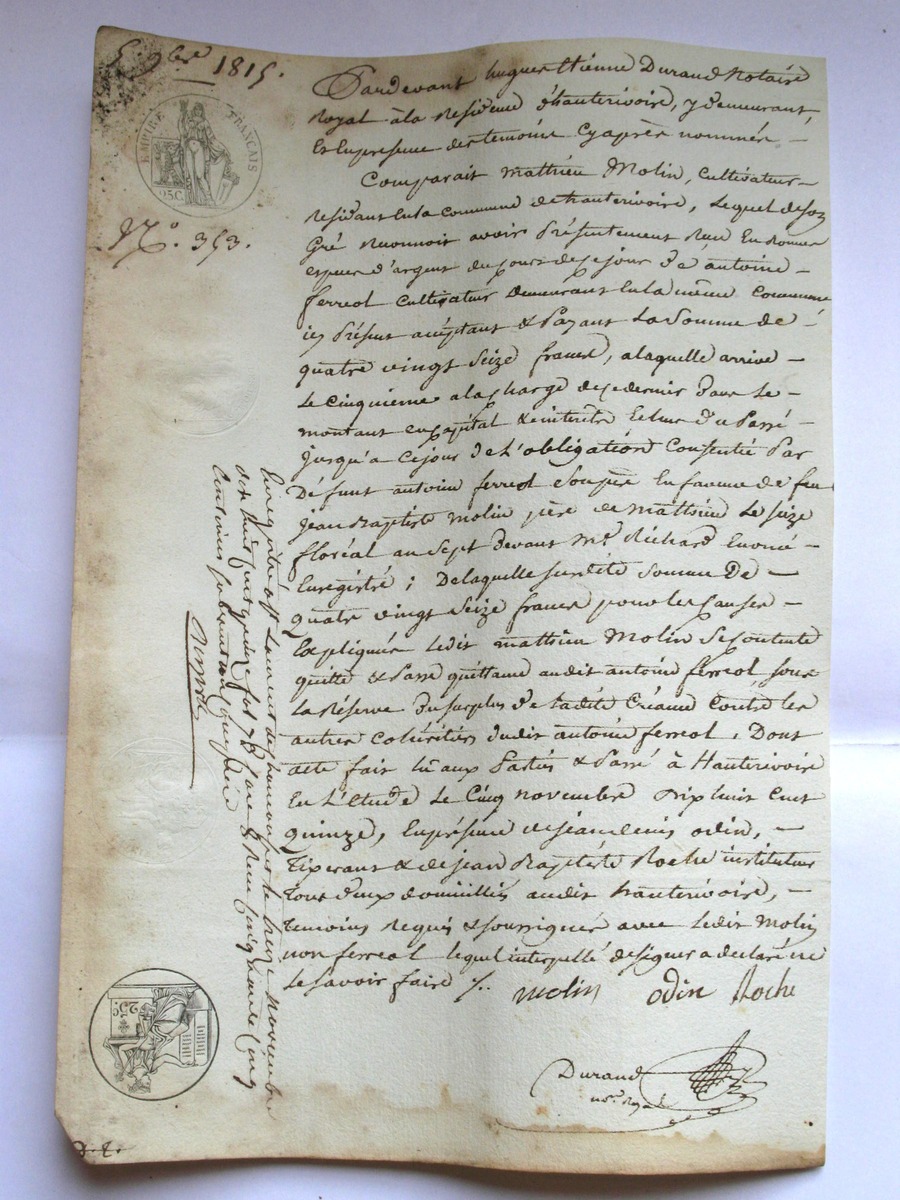 5 9bre 1815.
EMPIRE FRANÇAIS
25 C
N.º 353.
Pardevant hugues Etienne Durand Notaire
Royal à la Residence d'hauterivoire, y demeurant,
Et En presence des temoins Cy après nommés –
Comparait mathieu Molin, Cultivateur –
Residant En la Commune de hauterivoire, Lequel de son
Gré Reconnoit avoir Présentement Reçu En bonnes
especes d'argent du cours de ce jour d'é antoine –
ferreol Cultivateur Demeurant En la même Commune
icy Présent acceptant & Payant La Somme de –
quatre vingt Seize francs, a laquelle arrive –
Le Cinquieme a la charge de ce dernier Dans Le –
montant en capital & interets Echus du Passé –
jusqu'a ce jour de L'obligation Consentie Par
Défunt antoine ferreol Son père En faveur de feu
jean Baptiste molin père de mathieu Le Seize
floréal an Sept Devant Mᵉ Richard
Enregistré ; De laquelle Susdite Somme De –
quatre vingt Seize francs pour les Causes –
Expliquées Ledit mathieu Molin Se Contente
quitte & Passe quittance audit antoine ferreol Sous
La Réserve Du Surplus de Ladite Créance Contre les
autres Cohéritiers dudit antoine ferreol, Dont
acte fait Lu aux Parties & Passé à Hauterivoire
En L'étude Le Cinq novembre Dix huit Cent
quinze, En présence de jean denis odin, –
tixerant & de jean Baptiste Roche instituteur
tous deux domiciliés audit hauterivoire, –
temoins Requis & soussignés avec Ledit Molin
non ferreol lequel interpellé de signer a declaré ne
Le Savoir faire /.
molin odin Roche
Durand
not. Royal
Enregistré a St Laurent de chamousset le treize Novembre
dix huit cent quinze fol 78 Case 8 Reçu cinquante Cinq
Centimes Subvention Comprise
25 C